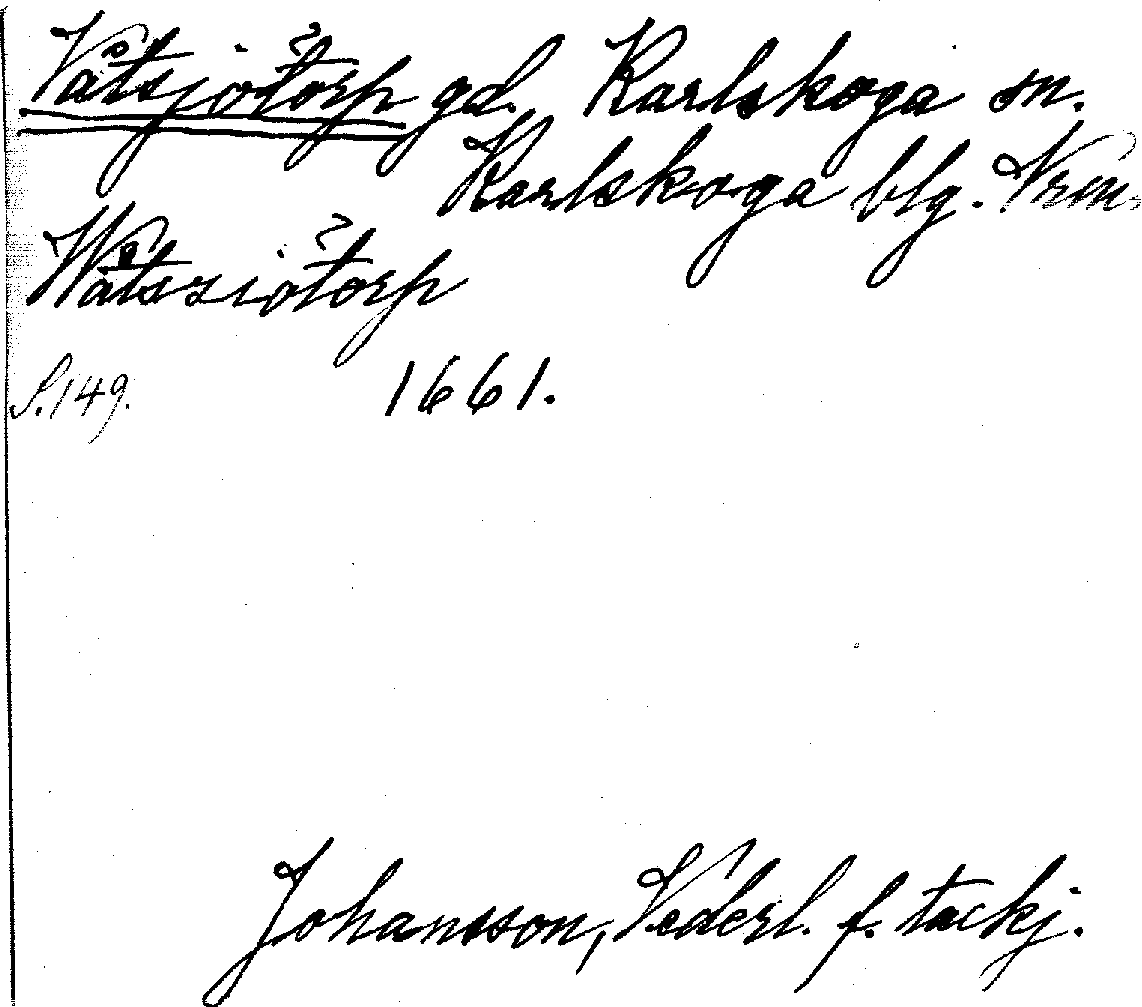 Våtsjötorp gd. Karlskoga sn.
Karlskoga blg. Vrm.
Wåtsziötorp
S. 149. 1661.
Johansson, Vederl. f. tackj.